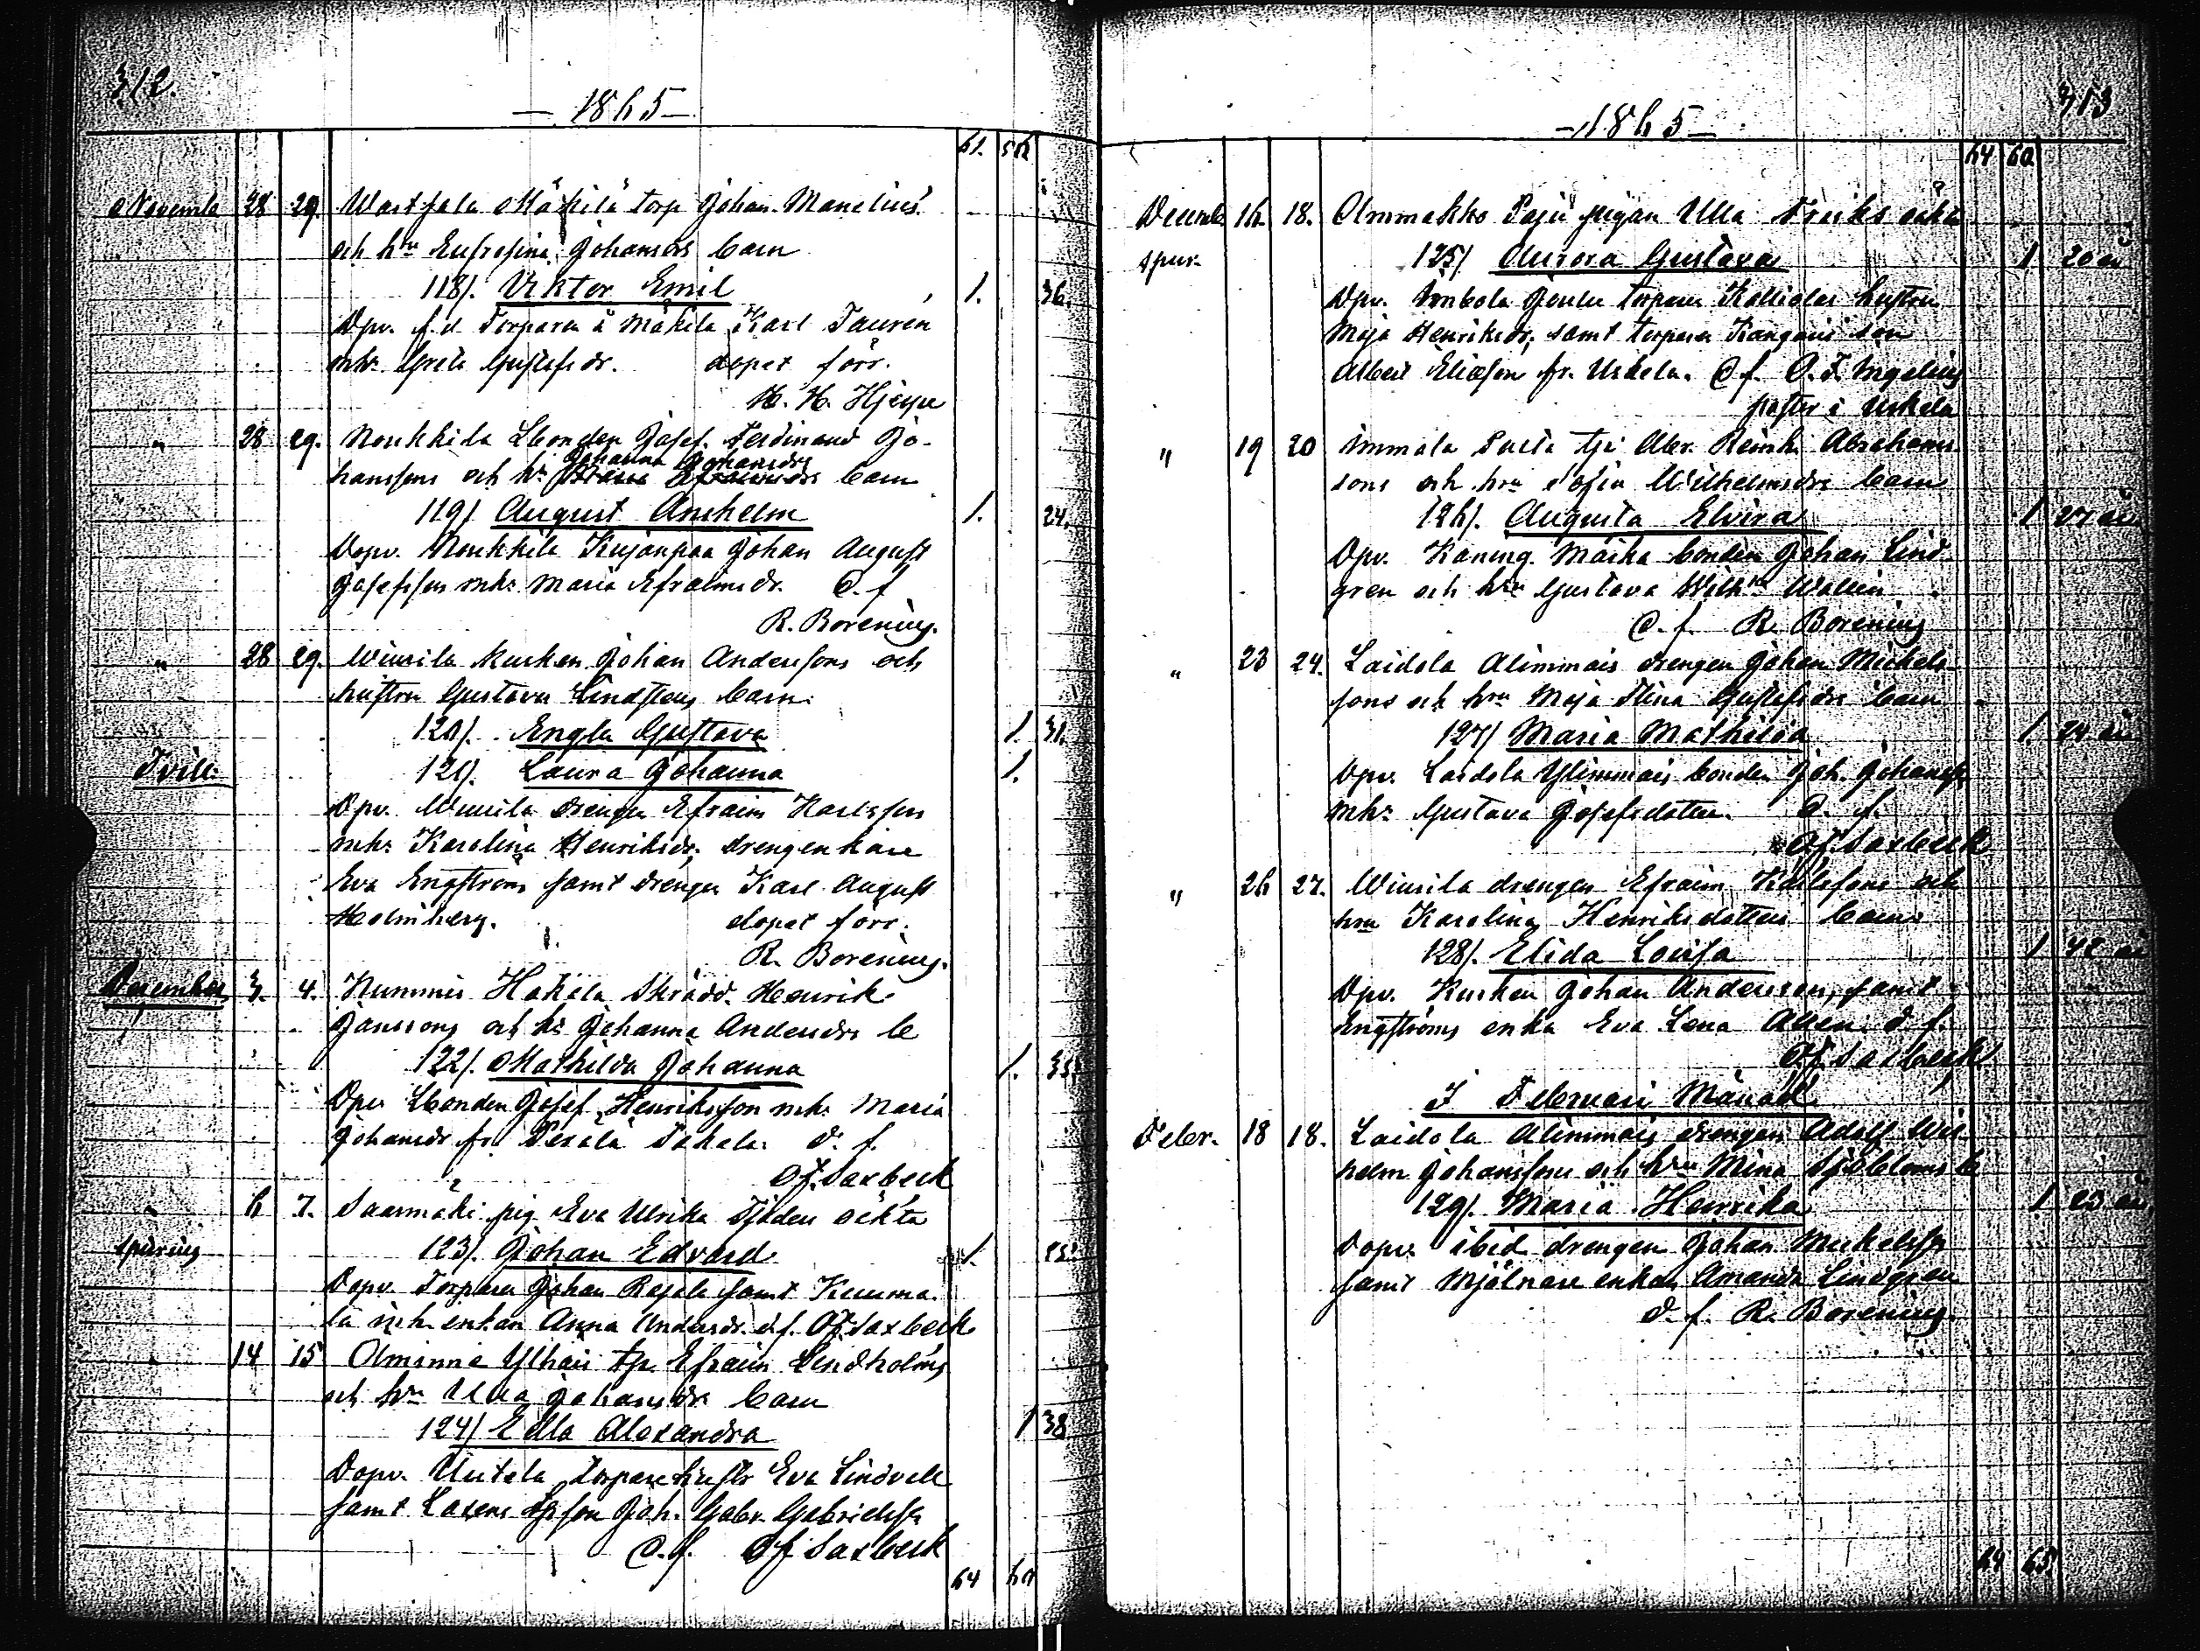 312.
— 1865 —
61. 56
Novemb 28 29. Wartsala Mäkilä torp Johan Manelius
och hru Eufrosina Johansdrs barn
118/. Viktor Emil 1. 36.
Dpv. f.d. Torparen å Mäkilä Karl Tauren
mhr Greta Gustafsdr. döpet förr.
H. H. Hjerpe
" 28 29. Noukkila Lbonden Josef Ferdinand Jo-
hanssons och hr Johanna Johansdrs barn
119/. August Anshelm 1. 24.
Dopv. Noukkila Kujanpää Johan August
Josefsson mhr Maria Efraimsdr. D. f
R. Borenius.
" 28 29. Wiurila Kusken Johan Anderssons och
hustru Gustava Lindstens barn.
120/. Engla Gustava 1. 31.
Tvill. 121/. Laura Johanna 1.
Dpv. Wiurila drengen Efraim Karlsson
mhr Karolina Henriksdr. drengenkan
Eva Engström samt drengen Karl August
Holmberg. döpet förr.
R. Borenius.
December 3. 4. Kummis Hakala Skrädd. Henrik
Janssons och hr Johanna Andersdrs b
122/. Mathilda Johanna 1. 35.
Dpv Lbonden Josef Henriksson mhr Maria
Johansdr fr. Perälä Takala. D. f.
Of. Saxbeck
" 6 7. Saarmäki pig. Eva Ulrika Sjödens oäkta
spuring 123/. Johan Edvard 1. 25.
Dopv. Torparen Johan Rajala samt Kumma-
la enkan Anna Andersdr. d.f. Of. Saxbeck
" 14 15 Aminne Ylhäis tp. Efraim Lindholms
och hru Ulla Johansdrs barn
124/ Edla Alexandra 1 38
Dopv. Untala torparehustr Eva Lindvall
samt Laxens son Joh. Gabr. Gabrielsson
D. f. Of Saxbeck
64 60
313
— 1865 —
64 60
Decemb. 16. 18. Ammakko Paju pigan Ulla Friiks oäkta
spur. 125/. Aurora Gustava 1 20 år
Dpv. torparen Kalliolas hustru
Maja Henriksdr, samt torparen Kangas son
Albert Eliasson fr. Uskela. D f. O. F. Ingelius
pastor i Uskela
" 19 20 Immala Alex. Reinh. Abrahams-
sons och hru Sofia Wilhelmsdrs barn
126/. Augusta Elvira 1 27 år
Dpv. Kaning. bonden Johan Lind-
gren och hru Gustava Wilhma Wallin
D. f. R. Borenius
" 23 24. Laidola Alimmais drengen Johan Mickels-
sons och hru Maja Stina Gustafsdrs barn
127/ Maria Mathilda 1 24 år
Dpv. Laidola Ylimmais bonden Joh. Johansson
mhr Gustava Josefsdotter. D. f.
Of. Saxbeck
" 26 27. Wiurila drengen Efraim Karlssons och
hru Karolina Henriksdotters barn
128/. Elida Lovisa 1 42 år
Dpv. Kusken Johan Andersson, samt
Engströms enka Eva Lena D. f.
Of. Saxbeck
I Februari Månad
Febr. 18 18. Laidola Alimmais drengen Adolf Wil-
helm Johanssons och hru Mina Sjöbloms b
129/. Maria Henrika 1 23 år
Dopv. ibid drengen Johan Mickelsson
samt Mjölnare enkan Amanda Lindgren
D. f. R. Borenius.
64 65